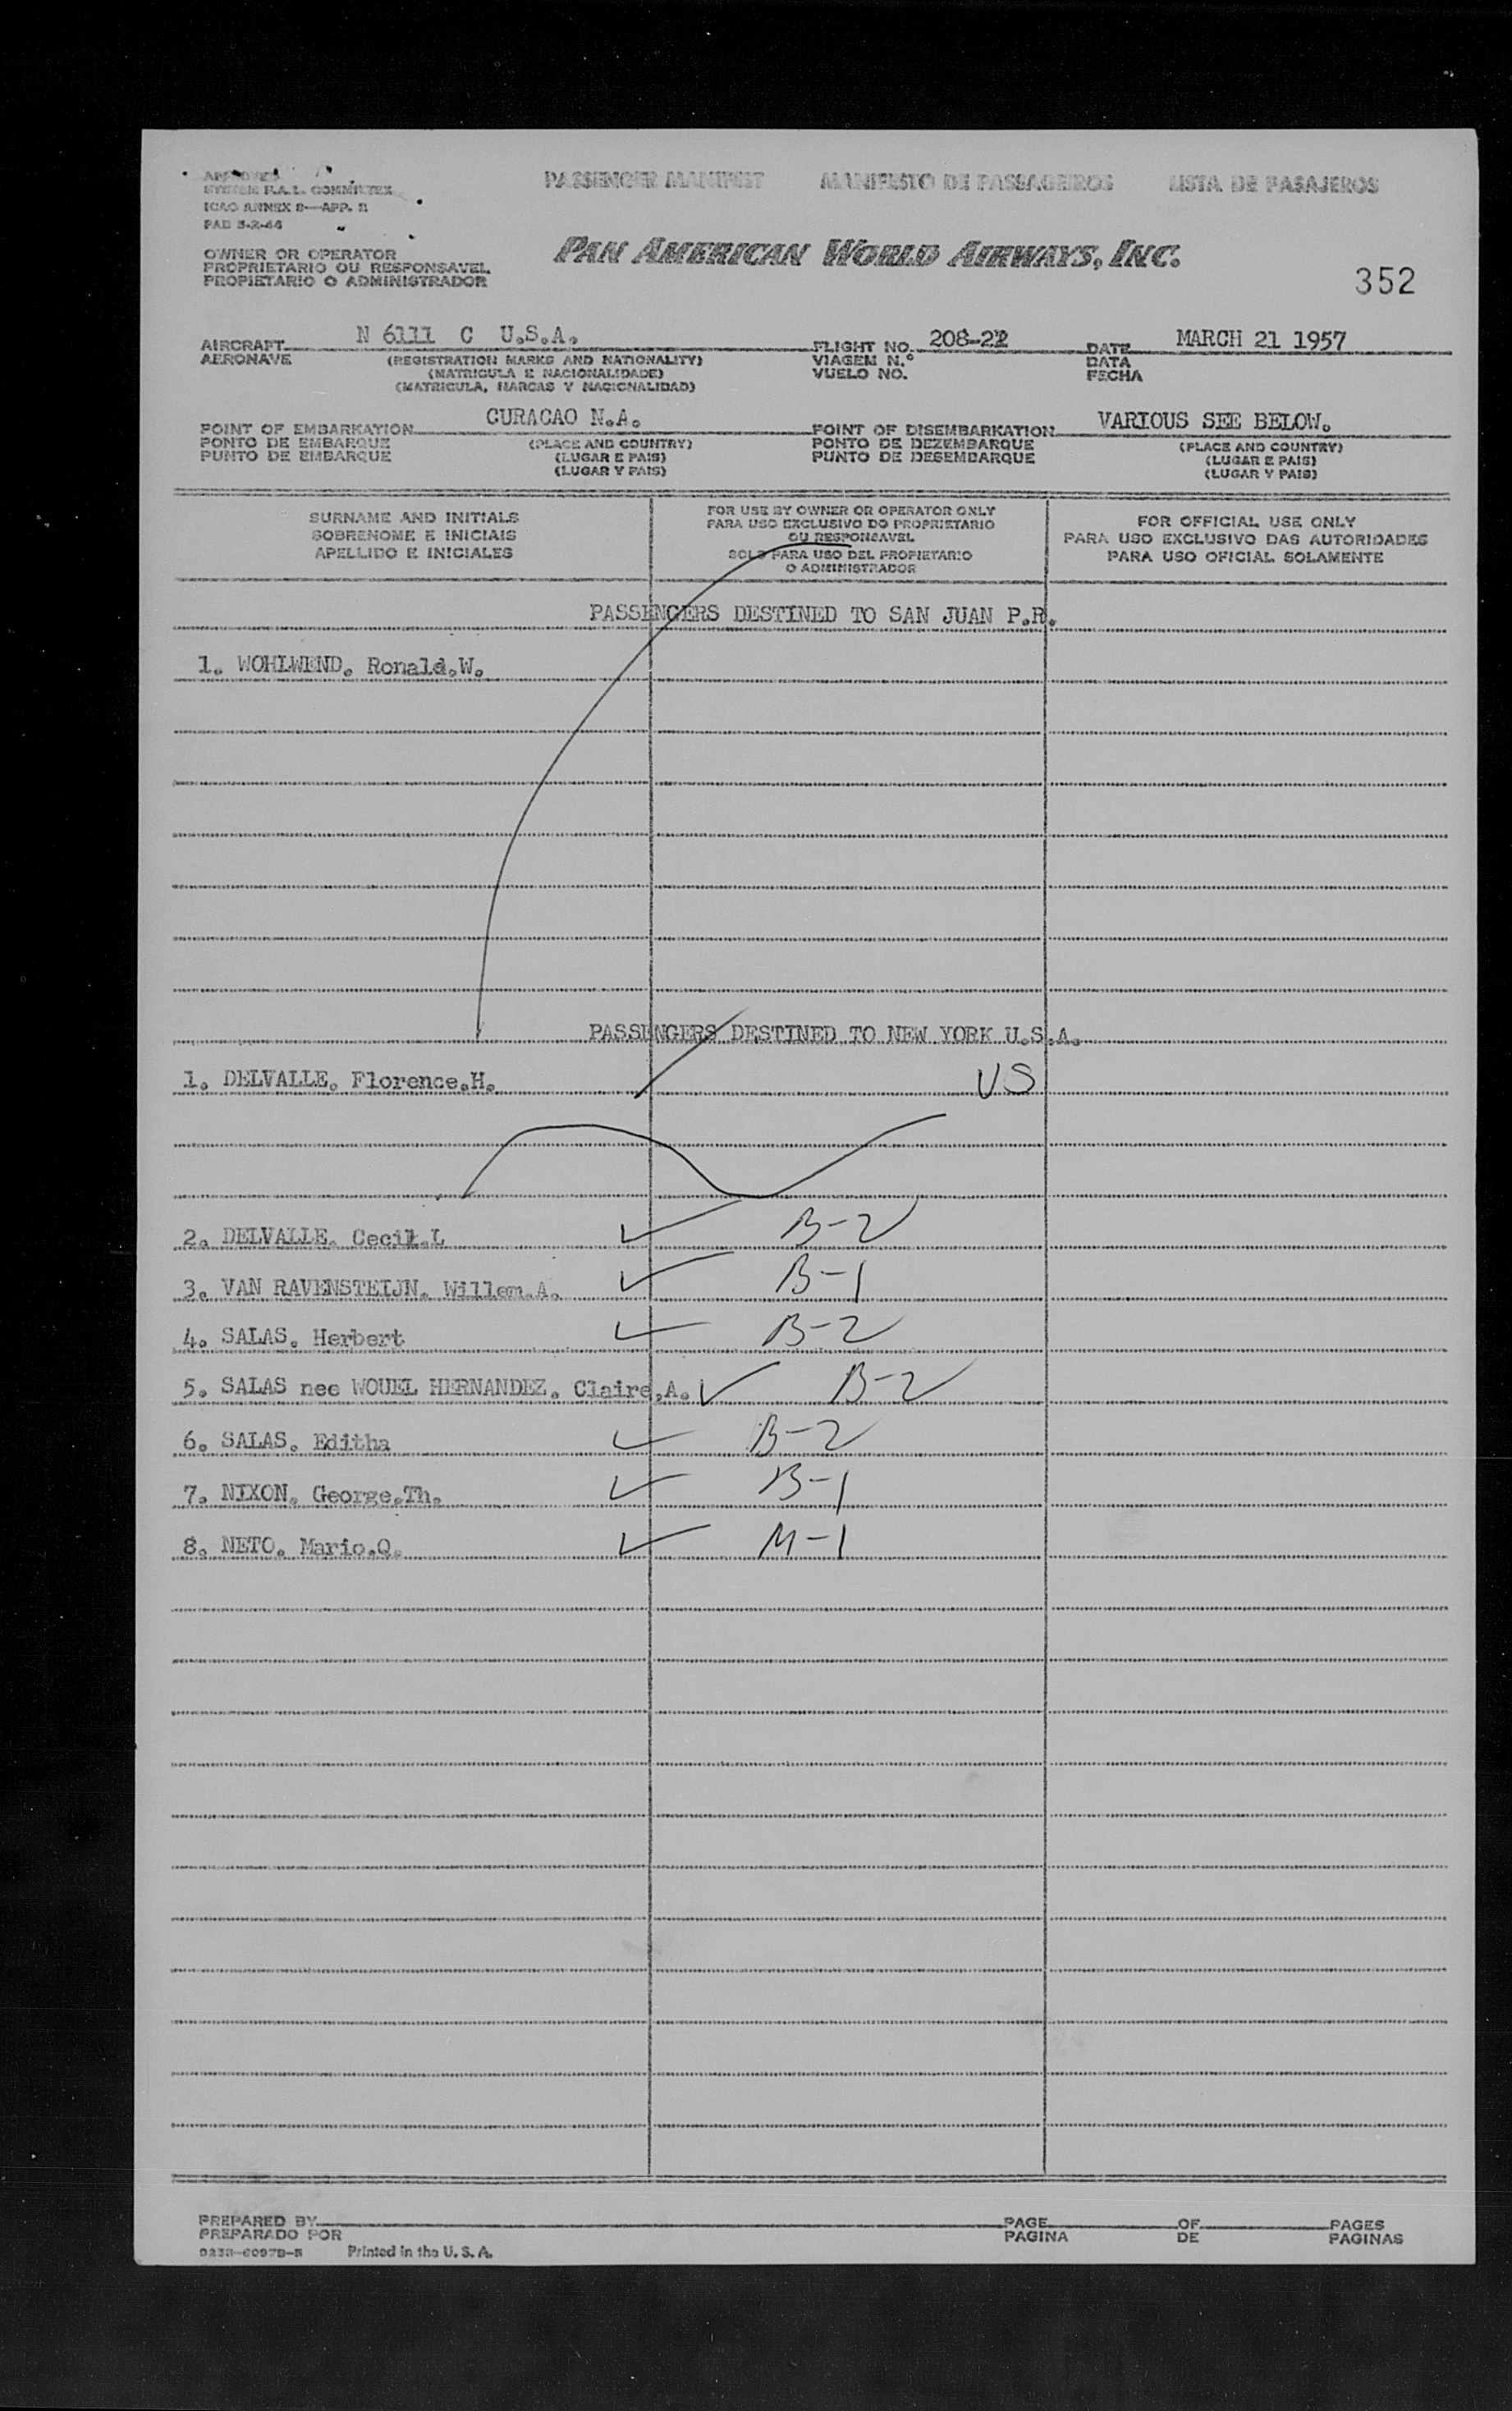 APPROVED
SYSTEM F.A.L. COMMITTEE
ICAO ANNEX 9—APP. B
PAD 5-2-46
PASSENGER MANIFEST MANIFESTO DE PASSAGEIROS LISTA DE PASAJEROS
OWNER OR OPERATOR
PROPRIETARIO OU RESPONSAVEL
PROPIETARIO O ADMINISTRADOR
PAN AMERICAN WORLD AIRWAYS, INC.
352
AIRCRAFT N 6111 C U.S.A. FLIGHT NO. 208-22 DATE MARCH 21 1957
AERONAVE (REGISTRATION MARKS AND NATIONALITY) VIAGEM N.º DATA
(MATRICULA E NACIONALIDADE) VUELO NO. FECHA
(MATRICULA, MARCAS Y NACIONALIDAD)
POINT OF EMBARKATION CURACAO N.A. POINT OF DISEMBARKATION VARIOUS SEE BELOW.
PONTO DE EMBARQUE (PLACE AND COUNTRY) PONTO DE DEZEMBARQUE (PLACE AND COUNTRY)
PUNTO DE EMBARQUE (LUGAR E PAIS) PUNTO DE DESEMBARQUE (LUGAR E PAIS)
(LUGAR Y PAIS) (LUGAR Y PAIS)
SURNAME AND INITIALS
SOBRENOME E INICIAIS
APELLIDO E INICIALES
FOR USE BY OWNER OR OPERATOR ONLY
PARA USO EXCLUSIVO DO PROPRIETARIO
OU RESPONSAVEL
SOLO PARA USO DEL PROPIETARIO
O ADMINISTRADOR
FOR OFFICIAL USE ONLY
PARA USO EXCLUSIVO DAS AUTORIDADES
PARA USO OFICIAL SOLAMENTE
PASSENGERS DESTINED TO SAN JUAN P.R.
1. WOHLWEND. Ronald.W.
PASSENGERS DESTINED TO NEW YORK U.S.A.
1. DELVALLE. Florence.H. US
2. DELVALLE. Cecil.L B-2
3. VAN RAVENSTEIJN. Willem.A. B-1
4. SALAS. Herbert B-2
5. SALAS nee WOUEL HERNANDEZ. Claire.A. B-2
6. SALAS. Editha B-2
7. NIXON. George.Th. B-1
8. NETO. Mario.Q. M-1
PREPARED BY PAGE OF PAGES
PREPARADO POR PAGINA DE PAGINAS
Printed in the U. S. A.